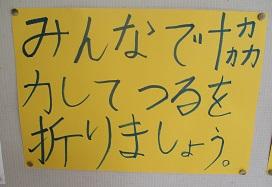 みんなで協
力してつるを
折りましょう。